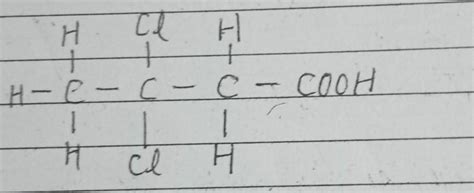 H Cl H
H - C - C - C - COOH
H Cl H